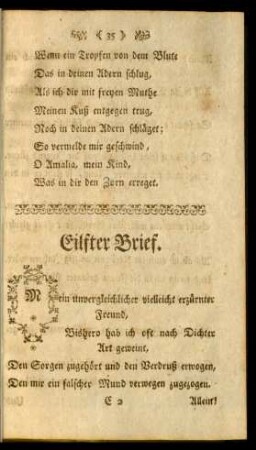 ( 35 )
Wenn ein Tropfen von dem Blute
Das in deinen Adern schlug,
Als ich dir mit freyen Muthe
Meinen Kuß entgegen trug,
Noch in deinen Adern schläget;
So vermelde mir geschwind,
O Amalia, mein Kind,
Was in dir den Zorn erreget.
Eilfter Brief.
Mein unvergleichlicher vielleicht erzürnter
Freund,
Bishero hab ich oft nach Dichter
Art geweint,
Den Sorgen zugehört und den Verdruß erwogen,
Den mir ein falscher Mund verwegen zugezogen.
C 2 Allein!